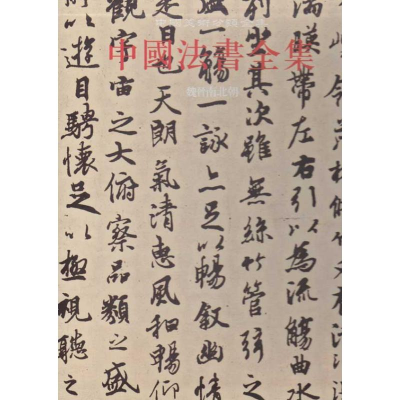 中國法書全集
魏晉南北朝
湍暎帶左右引以為流觴曲水
列坐其次雖無絲竹管弦之
盛一觴一詠亦足以暢敘幽情
是日也天朗氣清惠風和暢仰
觀宇宙之大俯察品類之盛
所以遊目騁懷足以極視聽之